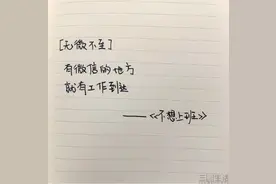 ［无微不至］
有微信的地方
就有工作到达
——《不想上班》